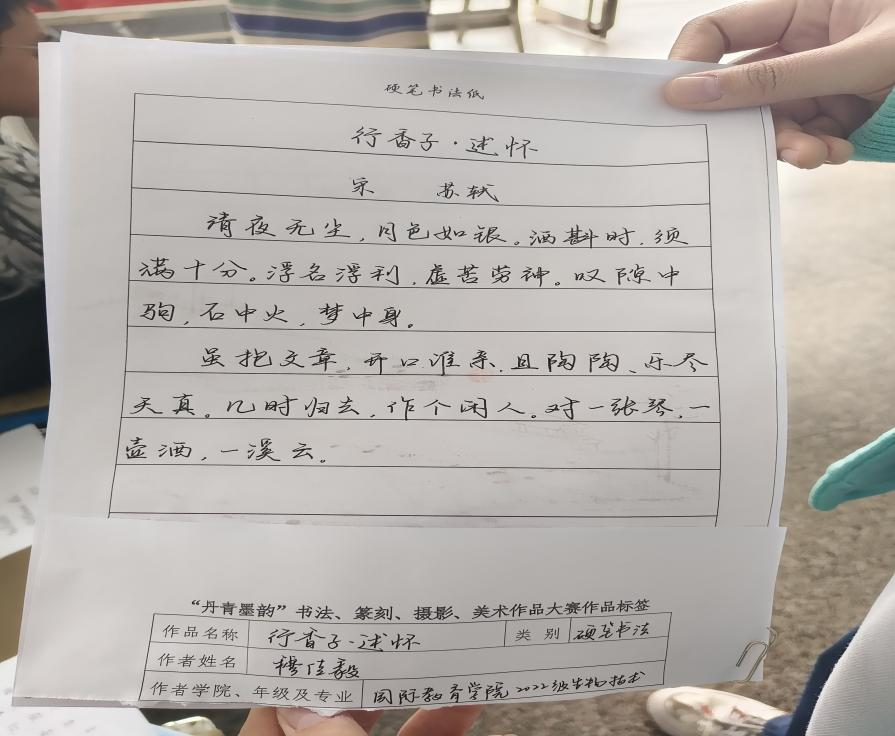 硬笔书法纸
行香子·述怀
宋 苏轼
清夜无尘,月色如银。酒斟时,须
满十分。浮名浮利,虚苦劳神。叹隙中
驹,石中火,梦中身。
虽抱文章,开口谁亲,且陶陶、乐尽
天真。几时归去,作个闲人。对一张琴,一
壶酒,一溪云。
“丹青墨韵”书法、篆刻、摄影、美术作品大赛作品标签
作品名称 行香子·述怀 类别 硬笔书法
作者姓名 穆佳毅
作者学院、年级及专业 国际教育学院2022级生物技术